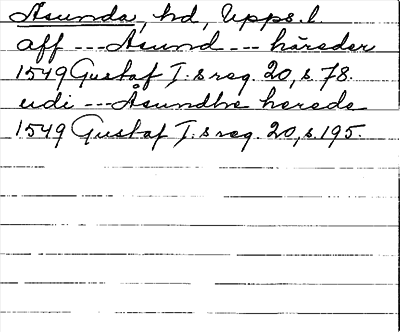 Åsunda, hd, Upps. l.
aff --- Åsund --- häreder
1549 Gustaf I:s reg. 20, s. 78.
udi --- Åsundhe herede
1549 Gustaf I:s reg. 20, s. 195.